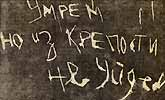 УМРЕМ !!
НО ИЗ КРЕПОСТИ
НЕ УЙДЕМ